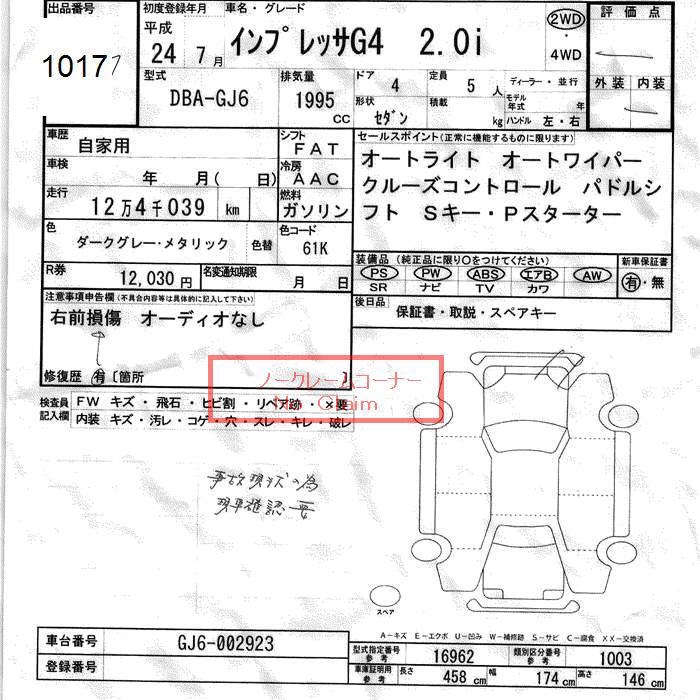 出品番号 初度登録年月 車名・グレード 2WD 評価点
10177 平成 24 7月 インプレッサG4 2.0i ・ 4WD
型式 DBA-GJ6 排気量 1995 CC ドア 4 定員 5 人 ディーラー・並行 外装 内装
形状 セダン 積載 kg モデル年式 年 ハンドル 左・右
車歴 自家用 シフト FAT セールスポイント(正常に機能するものに限ります)
車検 年 月( 日) 冷房 AAC オートライト オートワイパー
走行 12万4千039 km 燃料 ガソリン クルーズコントロール パドルシ
フト Sキー・Pスターター
色 ダークグレー・メタリック 色替 色コード 61K
装備品(純正品に限り○をつけてください) 新車保証書
R券 12,030円 名変通知期限 月 日 PS PW ABS エアB AW 有・無
SR ナビ TV カワ
注意事項申告欄(不具合内容等は具体的に記入して下さい) 後日品 保証書・取説・スペアキー
右前損傷 オーディオなし
修復歴 有 [箇所 ]
ノークレームコーナー
No Claim
検査員 FW キズ・飛石・ヒビ割・リペア跡・×要
記入欄 内装 キズ・汚レ・コゲ・穴・スレ・キレ・破レ
事故現状の為
現車確認要
スペア
A-キズ E-エクボ U-凹み W-補修跡 S-サビ C-腐食 XX-交換済
車台番号 GJ6-002923 型式指定番号 参考 16962 類別区分番号 参考 1003
登録番号 車庫証明用 参考 長さ 458cm 幅 174cm 高さ 146cm